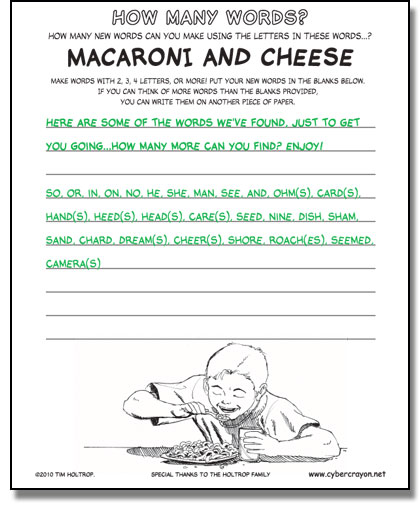 HOW MANY WORDS?
HOW MANY NEW WORDS CAN YOU MAKE USING THE LETTERS IN THESE WORDS...?
MACARONI AND CHEESE
MAKE WORDS WITH 2, 3, 4 LETTERS, OR MORE! PUT YOUR NEW WORDS IN THE BLANKS BELOW.
IF YOU CAN THINK OF MORE WORDS THAN THE BLANKS PROVIDED,
YOU CAN WRITE THEM ON ANOTHER PIECE OF PAPER.
HERE ARE SOME OF THE WORDS WE'VE FOUND, JUST TO GET
YOU GOING...HOW MANY MORE CAN YOU FIND? ENJOY!
SO, OR, IN, ON, NO, HE, SHE, MAN, SEE, AND, OHM(S), CARD(S),
HAND(S), HEED(S), HEAD(S), CARE(S), SEED, NINE, DISH, SHAM,
SAND, CHARD, DREAM(S), CHEER(S), SHORE, ROACH(ES), SEEMED,
CAMERA(S)
©2010 TIM HOLTROP. SPECIAL THANKS TO THE HOLTROP FAMILY www.cybercrayon.net